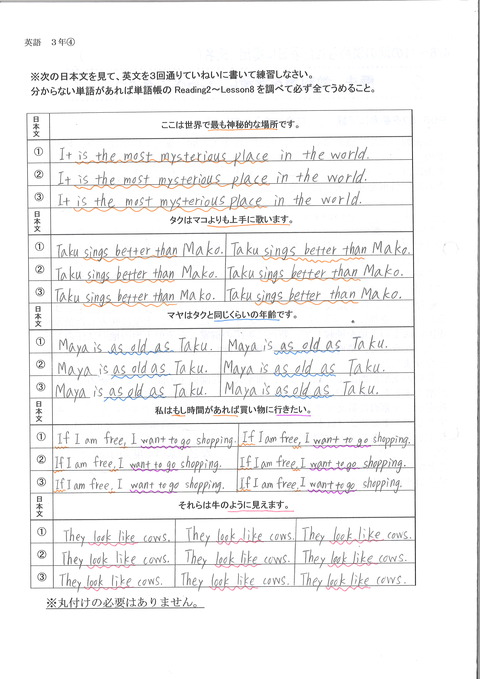 英語 3年④
※次の日本文を見て、英文を3回通りていねいに書いて練習しなさい。
分からない単語があれば単語帳の Reading2～Lesson8 を調べて必ず全てうめること。
日本文 ここは世界で最も神秘的な場所です。
① It is the most mysterious place in the world.
② It is the most mysterious place in the world.
③ It is the most mysterious place in the world.
日本文 タクはマコよりも上手に歌います。
① Taku sings better than Mako. Taku sings better than Mako.
② Taku sings better than Mako. Taku sings better than Mako.
③ Taku sings better than Mako. Taku sings better than Mako.
日本文 マヤはタクと同じくらいの年齢です。
① Maya is as old as Taku. Maya is as old as Taku.
② Maya is as old as Taku. Maya is as old as Taku.
③ Maya is as old as Taku. Maya is as old as Taku.
日本文 私はもし時間があれば買い物に行きたい。
① If I am free, I want to go shopping. If I am free, I want to go shopping.
② If I am free, I want to go shopping. If I am free, I want to go shopping.
③ If I am free, I want to go shopping. If I am free, I want to go shopping.
日本文 それらは牛のように見えます。
① They look like cows. They look like cows. They look like cows.
② They look like cows. They look like cows. They look like cows.
③ They look like cows. They look like cows. They look like cows.
※丸付けの必要はありません。